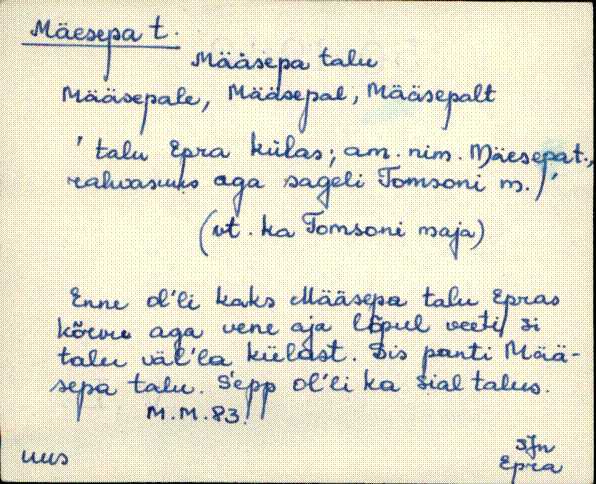 Mäesepa t.
Määsepa talu
Määsepale, Määsepal, Määsepalt
'talu Epra külas; am. nim. Mäesepa t.,
rahvasuus aga sageli Tomsoni m.)'
(vt. ka Tomsoni maja)
Enne ol'li kaks Määsepa talu Epras
kõrvu aga vene aja lõpul veeti si
talu väl'la külast. Sis panti Mää-
sepa talu. Sepp ol'li ka sial talus.
M.M.83.
uus
SJn
Epra